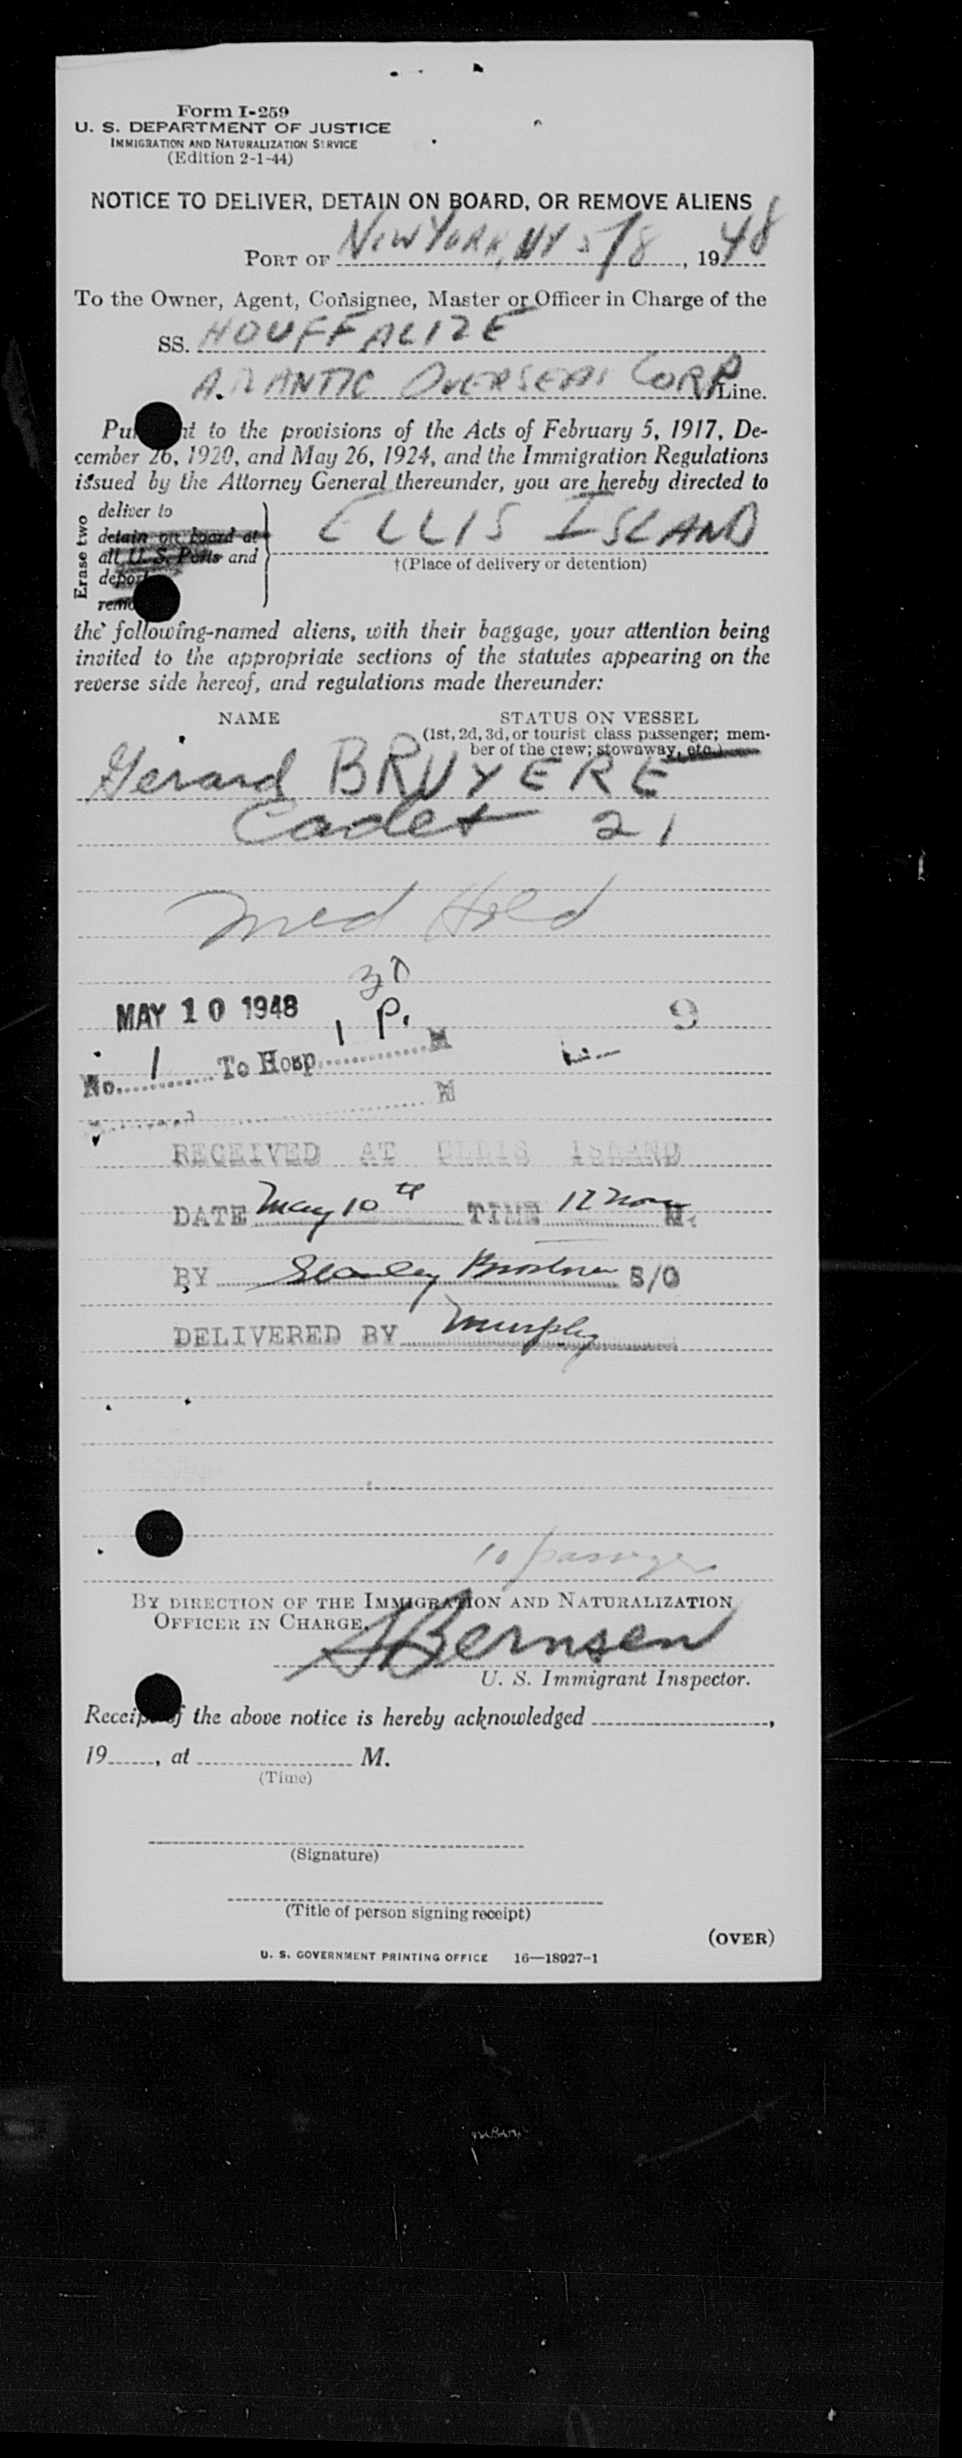 Form I-259
U. S. DEPARTMENT OF JUSTICE
IMMIGRATION AND NATURALIZATION SERVICE
(Edition 2-1-44)
NOTICE TO DELIVER, DETAIN ON BOARD, OR REMOVE ALIENS
PORT OF NEW YORK, NY 5/8, 1948
To the Owner, Agent, Consignee, Master or Officer in Charge of the
SS. HOUFFALIZE
ATLANTIC OVERSEAS CORP Line.
Pu ht to the provisions of the Acts of February 5, 1917, De-
cember 26, 1920, and May 26, 1924, and the Immigration Regulations
issued by the Attorney General thereunder, you are hereby directed to
Erase two
deliver to
detain on board at
all U. S. Ports and
deport
remo
ELLIS ISLAND
†(Place of delivery or detention)
the following-named aliens, with their baggage, your attention being
invited to the appropriate sections of the statutes appearing on the
reverse side hereof, and regulations made thereunder:
NAME STATUS ON VESSEL
(1st, 2d, 3d, or tourist class passenger; mem-
ber of the crew; stowaway, etc.)
Gerard BRUYERE
Cadet 21
Med Hold
30
MAY 10 1948 1 P. 9
No. 1 To Hosp. M
M
RECEIVED AT ELLIS ISLAND
DATE May 10th TIME 12 noon M.
BY Stanley S/O
DELIVERED BY Murphy
BY DIRECTION OF THE IMMIGRATION AND NATURALIZATION
OFFICER IN CHARGE.
S Bernsen
U. S. Immigrant Inspector.
Receipt of the above notice is hereby acknowledged ,
19 , at M.
(Time)
(Signature)
(Title of person signing receipt)
(OVER)
U. S. GOVERNMENT PRINTING OFFICE 16—18927-1